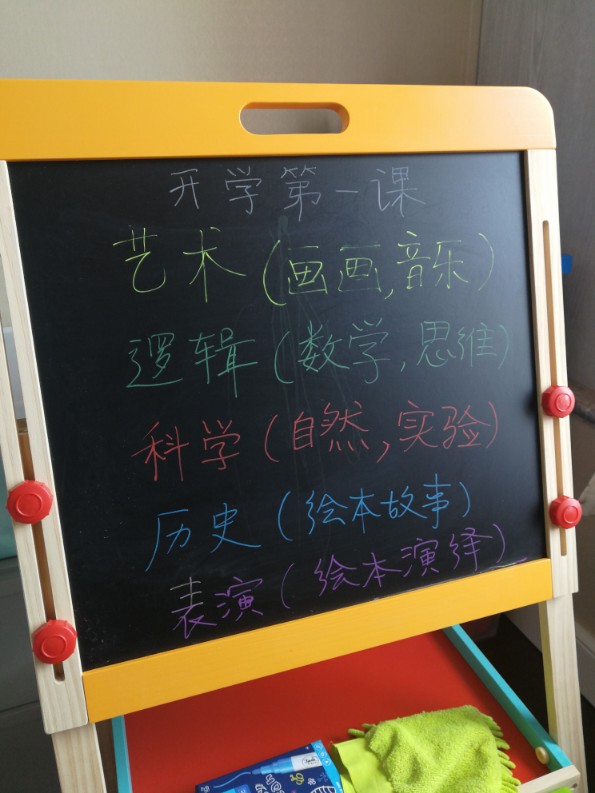 开学第一课
艺术(画画,音乐)
逻辑(数学,思维)
科学(自然,实验)
历史(绘本故事)
表演(绘本演绎)